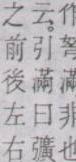 作弩滿非也
云。引滿曰彍
之前後左右